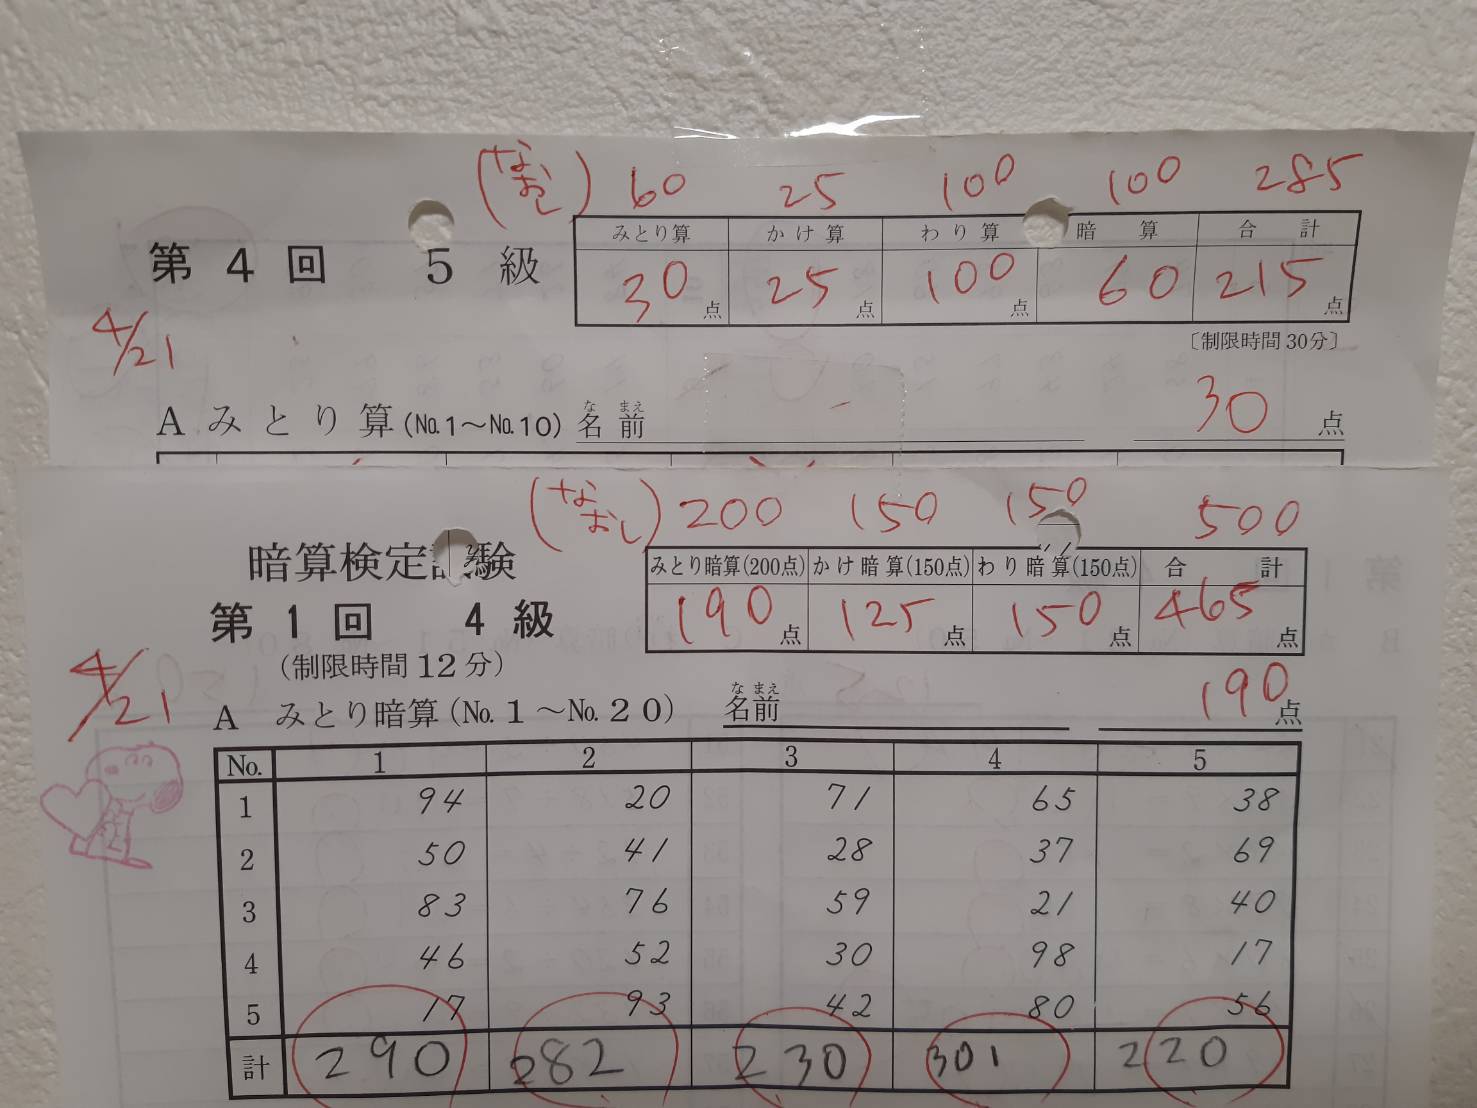 (なおし) 60 25 100 100 285
第4回 5級
みとり算 かけ算 わり算 暗算 合計
30点 25点 100点 60点 215点
〔制限時間30分〕
4/21
30点
A みとり算(No.1〜No.10) 名前
なまえ
(なおし) 200 150 150 500
暗算検定試験
みとり暗算(200点) かけ暗算(150点) わり暗算(150点) 合計
190点 125点 150点 465点
第1回 4級
(制限時間12分)
4/21
190点
A みとり暗算(No.1〜No.20) 名前
なまえ
No. 1 2 3 4 5
1 94 20 71 65 38
2 50 41 28 37 69
3 83 76 59 21 40
4 46 52 30 98 17
5 17 93 42 80 56
計 290 282 230 301 220